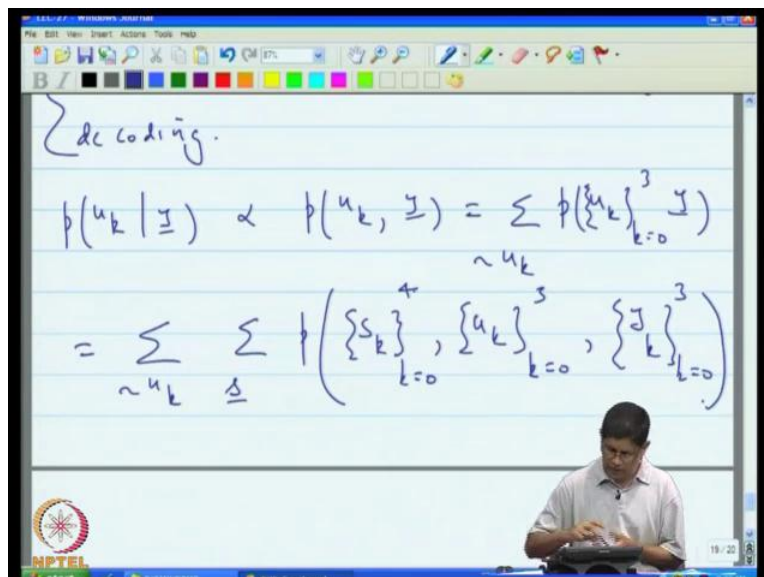 LEC-27 - Windows Journal
File Edit View Insert Actions Tools Help
87%
B I
decoding.
p(u_k | y) ∝ p(u_k, y) = Σ_{~u_k} p({u_k}_{k=0}^{3} y)
= Σ_{~u_k} Σ_{s} p({s_k}_{k=0}^{4}, {u_k}_{k=0}^{3}, {y_k}_{k=0}^{3})
19 / 20
NPTEL